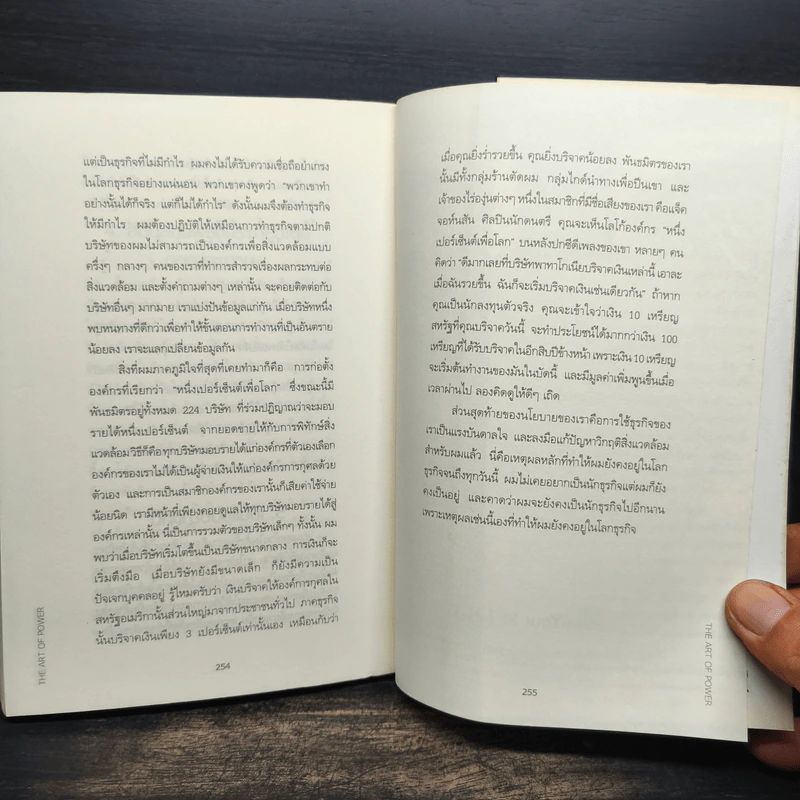 แต่เป็นธุรกิจที่ไม่มีกำไร ผมคงไม่ได้รับความเชื่อถือยำเกรง
ในโลกธุรกิจอย่างแน่นอน พวกเขาคงพูดว่า “พวกเขาทำ
อย่างนั้นได้ก็จริง แต่ก็ไม่ได้กำไร” ดังนั้นผมจึงต้องทำธุรกิจ
ให้มีกำไร ผมต้องปฏิบัติให้เหมือนการทำธุรกิจตามปกติ
บริษัทของผมไม่สามารถเป็นองค์กรเพื่อสิ่งแวดล้อมแบบ
ครึ่งๆ กลางๆ คนของเราที่ทำการสำรวจเรื่องผลกระทบต่อ
สิ่งแวดล้อม และตั้งคำถามต่างๆ เหล่านั้น จะคอยติดต่อกับ
บริษัทอื่นๆ มากมาย เราแบ่งปันข้อมูลแก่กัน เมื่อบริษัทหนึ่ง
พบหนทางที่ดีกว่าเพื่อทำให้ขั้นตอนการทำงานที่เป็นอันตราย
น้อยลง เราจะแลกเปลี่ยนข้อมูลกัน
สิ่งที่ผมภาคภูมิใจที่สุดที่เคยทำมาก็คือ การก่อตั้ง
องค์กรที่เรียกว่า “หนึ่งเปอร์เซ็นต์เพื่อโลก” ซึ่งขณะนี้มี
พันธมิตรอยู่ทั้งหมด 224 บริษัท ที่ร่วมปฏิญาณว่าจะมอบ
รายได้หนึ่งเปอร์เซ็นต์ จากยอดขายให้กับการพิทักษ์สิ่ง
แวดล้อมวิธีก็คือทุกบริษัทมอบรายได้แก่องค์กรที่ตัวเองเลือก
องค์กรของเราไม่ได้เป็นผู้จ่ายเงินให้แก่องค์กรการกุศลด้วย
ตัวเอง และการเป็นสมาชิกองค์กรของเรานั้นก็เสียค่าใช้จ่าย
น้อยนิด เรามีหน้าที่เพียงคอยดูแลให้ทุกบริษัทมอบรายได้สู่
องค์กรเหล่านั้น นี่เป็นการรวมตัวของบริษัทเล็กๆ ทั้งนั้น ผม
พบว่าเมื่อบริษัทเริ่มโตขึ้นเป็นบริษัทขนาดกลาง การเงินก็จะ
เริ่มตึงมือ เมื่อบริษัทยังมีขนาดเล็ก ก็ยังมีความเป็น
ปัจเจกบุคคลอยู่ รู้ไหมครับว่า เงินบริจาคให้องค์การกุศลใน
สหรัฐอเมริกานั้นส่วนใหญ่มาจากประชาชนทั่วไป ภาคธุรกิจ
นั้นบริจาคเงินเพียง 3 เปอร์เซ็นต์เท่านั้นเอง เหมือนกับว่า
254
THE ART OF POWER
เมื่อคุณยิ่งร่ำรวยขึ้น คุณยิ่งบริจาคน้อยลง พันธมิตรของเรา
นั้นมีทั้งกลุ่มร้านตัดผม กลุ่มไกด์นำทางเพื่อปีนเขา และ
เจ้าของไร่องุ่นต่างๆ หนึ่งในสมาชิกที่มีชื่อเสียงของเรา คือแจ็ค
จอห์นสัน ศิลปินนักดนตรี คุณจะเห็นโลโก้องค์กร “หนึ่ง
เปอร์เซ็นต์เพื่อโลก” บนหลังปกซีดีเพลงของเขา หลายๆ คน
คิดว่า “ดีมากเลยที่บริษัทพาทาโกเนียบริจาคเงินเหล่านี้ เอาละ
เมื่อฉันรวยขึ้น ฉันก็จะเริ่มบริจาคเงินเช่นเดียวกัน” ถ้าหาก
คุณเป็นนักลงทุนตัวจริง คุณจะเข้าใจว่าเงิน 10 เหรียญ
สหรัฐที่คุณบริจาควันนี้ จะทำประโยชน์ได้มากกว่าเงิน 100
เหรียญที่ได้รับบริจาคในอีกสิบปีข้างหน้า เพราะเงิน 10 เหรียญ
จะเริ่มต้นทำงานของมันในบัดนี้ และมีมูลค่าเพิ่มพูนขึ้นเมื่อ
เวลาผ่านไป ลองคิดดูให้ดีๆ เถิด
ส่วนสุดท้ายของนโยบายของเราคือการใช้ธุรกิจของ
เราเป็นแรงบันดาลใจ และลงมือแก้ปัญหาวิกฤติสิ่งแวดล้อม
สำหรับผมแล้ว นี่คือเหตุผลหลักที่ทำให้ผมยังคงอยู่ในโลก
ธุรกิจจนถึงทุกวันนี้ ผมไม่เคยอยากเป็นนักธุรกิจแต่ผมก็ยัง
คงเป็นอยู่ และคาดว่าผมจะยังคงเป็นนักธุรกิจไปอีกนาน
เพราะเหตุผลเช่นนี้เองที่ทำให้ผมยังคงอยู่ในโลกธุรกิจ
255
THE ART OF POWER